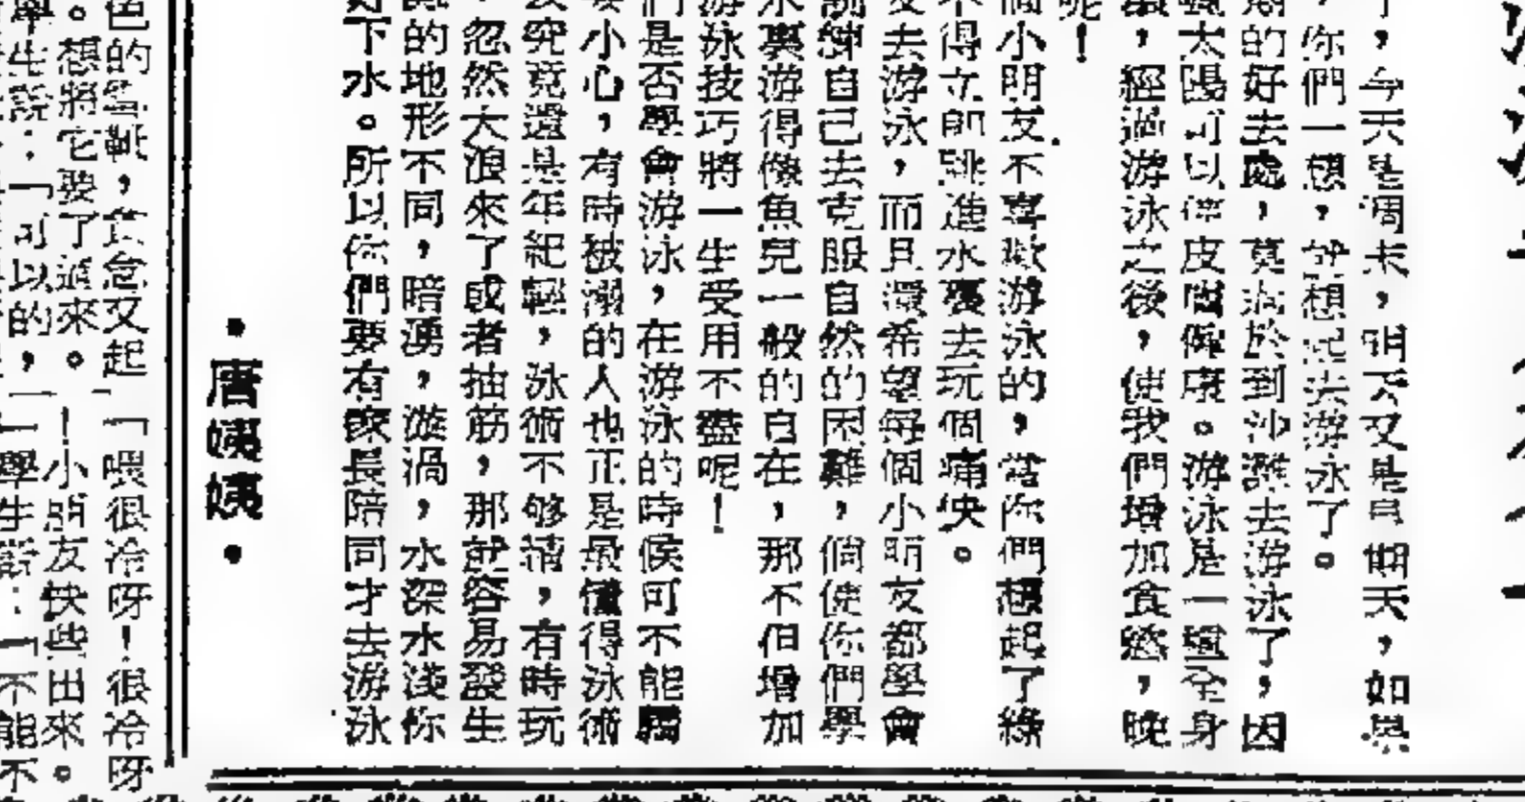 ，今天是週末，明天又是星期天，如果
，你們一想，就想起去游泳了。
的好去處，莫過於到沙灘去游泳了，因
太陽可以使皮膚健康。游泳是一種全身
，經過游泳之後，使我們增加食慾，晚
呢！
個小朋友不喜歡游泳的，當你們想起了綠
不得立即跳進水裏去玩個痛快。
去游泳，而且還希望每個小朋友都學會
訓練自己去克服自然的困難，倘使你們學
水裏游得像魚兒一般的自在，那不但增加
游泳技巧將一生受用不盡呢！
們是否學會游泳，在游泳的時候可不能獨
小心，有時被溺的人也正是最懂得泳術
究竟還是年紀輕，泳術不够精，有時玩
，忽然大浪來了或者抽筋，那就容易發生
的地形不同，暗湧，漩渦，水深水淺你
好下水。所以你們要有家長陪同才去游泳
•唐姨姨•
色的雪靴，貪念又起「喂很冷呀！很冷呀
。想將它要了過來。—小朋友快些出來。
學生說：「可以的，」學生答：「不能不